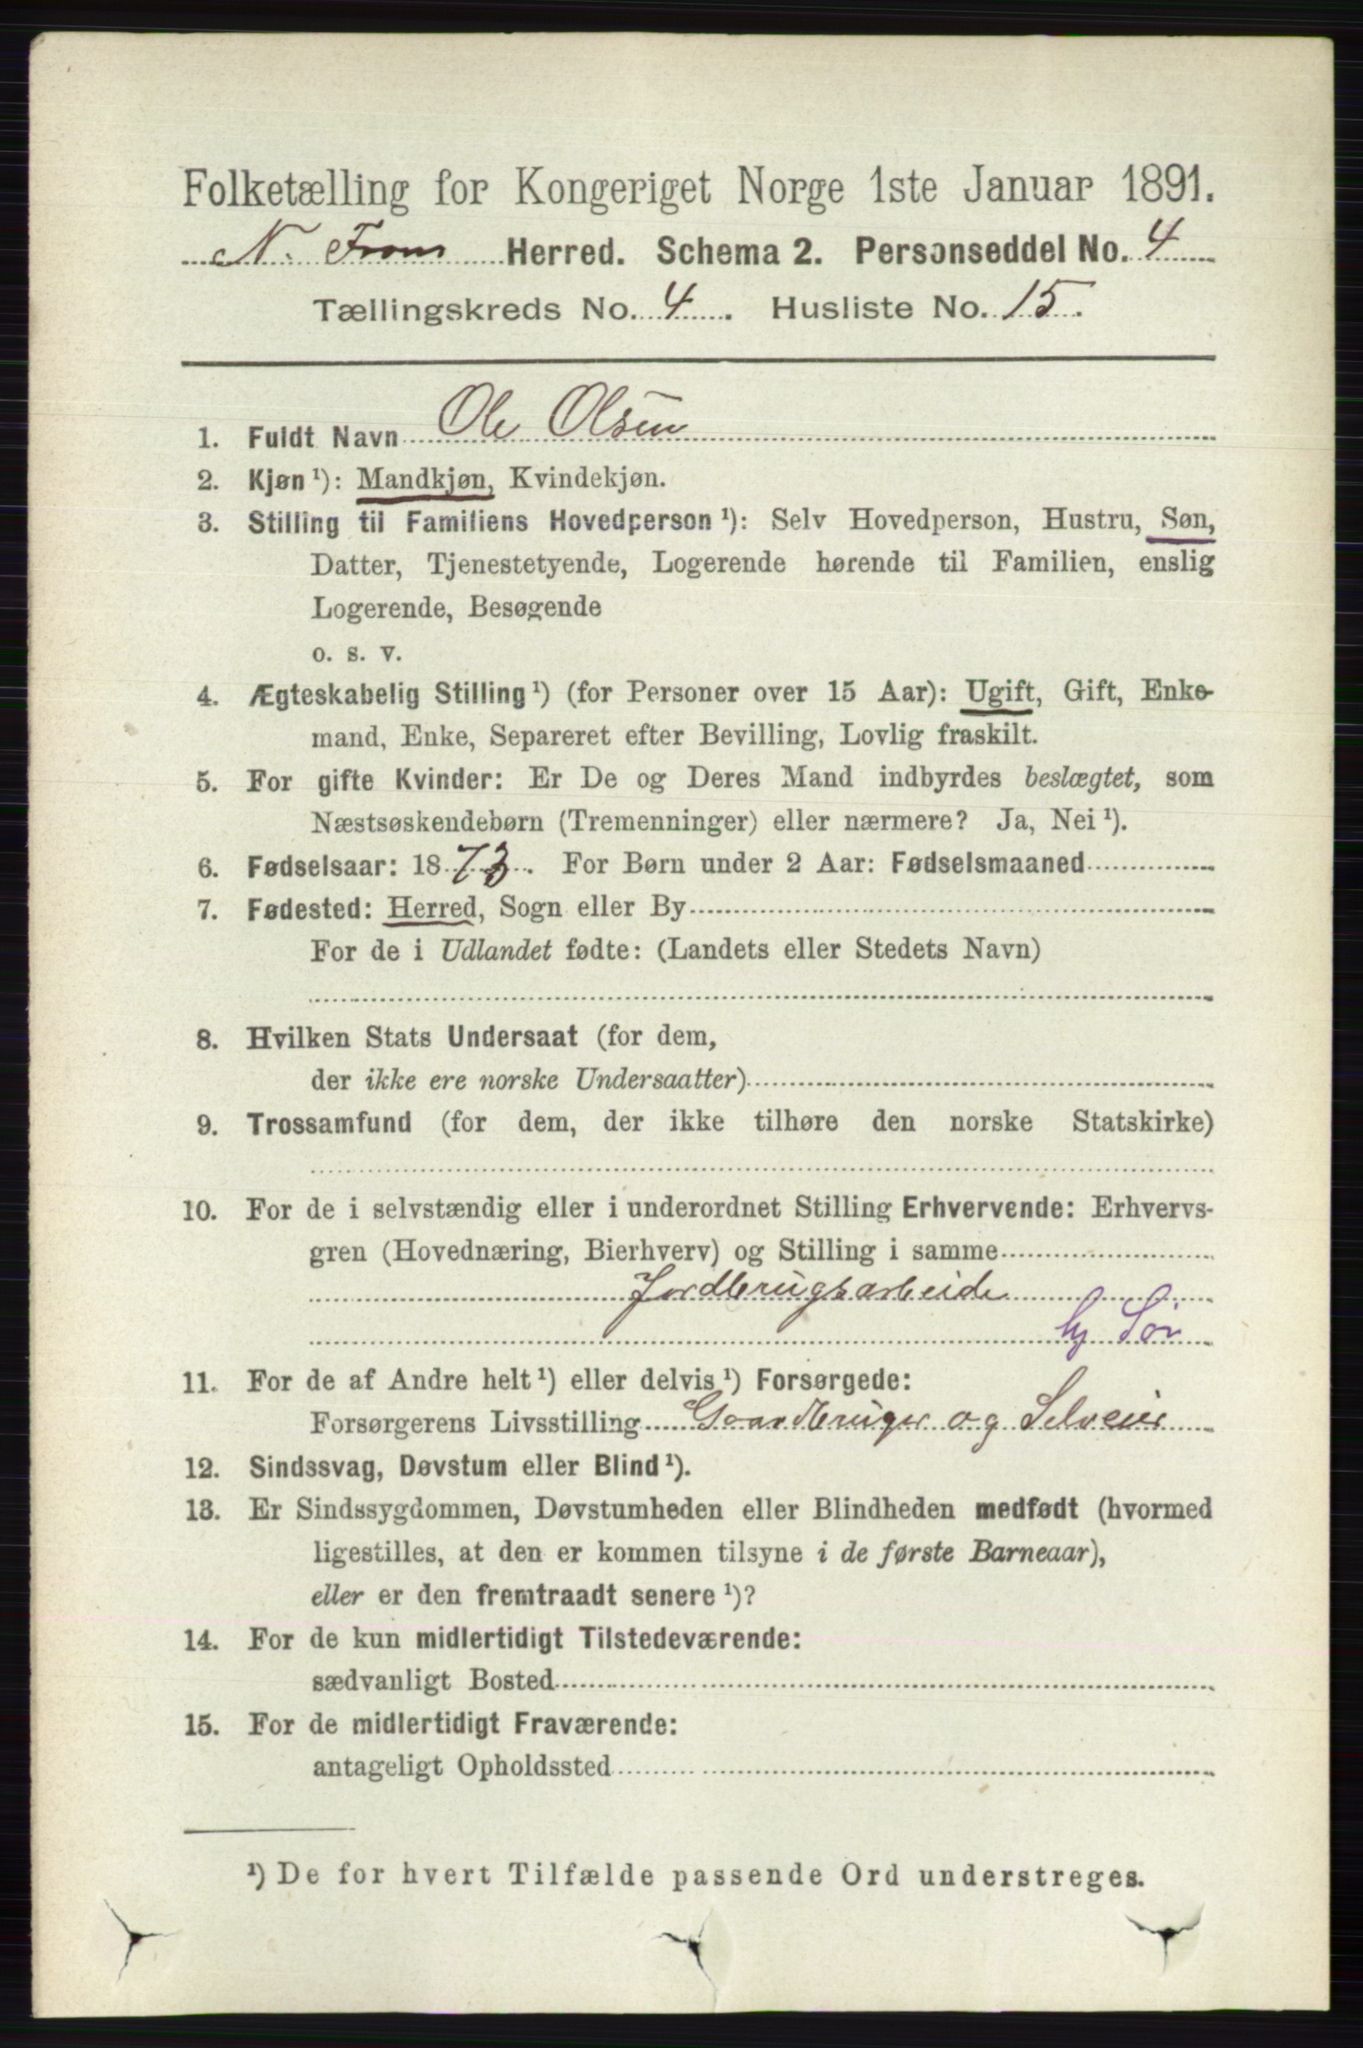 Folketælling for Kongeriget Norge 1ste Januar 1891.
N. Fron Herred. Schema 2. Personseddel No. 4
Tællingskreds No. 4. Husliste No. 15.
1. Fuldt Navn Ole Olsen
2. Kjøn ¹): Mandkjøn, Kvindekjøn.
3. Stilling til Familiens Hovedperson ¹): Selv Hovedperson, Hustru, Søn,
Datter, Tjenestetyende, Logerende hørende til Familien, enslig
Logerende, Besøgende
o. s. v.
4. Ægteskabelig Stilling ¹) (for Personer over 15 Aar): Ugift, Gift, Enke-
mand, Enke, Separeret efter Bevilling, Lovlig fraskilt.
5. For gifte Kvinder: Er De og Deres Mand indbyrdes beslægtet, som
Næstsøskendebørn (Tremenninger) eller nærmere? Ja, Nei ¹).
6. Fødselsaar: 1873. For Børn under 2 Aar: Fødselsmaaned
7. Fødested: Herred, Sogn eller By
For de i Udlandet fødte: (Landets eller Stedets Navn)
8. Hvilken Stats Undersaat (for dem,
der ikke ere norske Undersaatter)
9. Trossamfund (for dem, der ikke tilhøre den norske Statskirke)
10. For de i selvstændig eller i underordnet Stilling Erhvervende: Erhvervs-
gren (Hovednæring, Bierhverv) og Stilling i samme
Jordbrugsarbeide
11. For de af Andre helt ¹) eller delvis ¹) Forsørgede:
Forsørgerens Livsstilling Gaardbruger og Selveier
12. Sindssvag, Døvstum eller Blind ¹).
13. Er Sindssygdommen, Døvstumheden eller Blindheden medfødt (hvormed
ligestilles, at den er kommen tilsyne i de første Barneaar),
eller er den fremtraadt senere ¹)?
14. For de kun midlertidigt Tilstedeværende:
sædvanligt Bosted
15. For de midlertidigt Fraværende:
antageligt Opholdssted
¹) De for hvert Tilfælde passende Ord understreges.